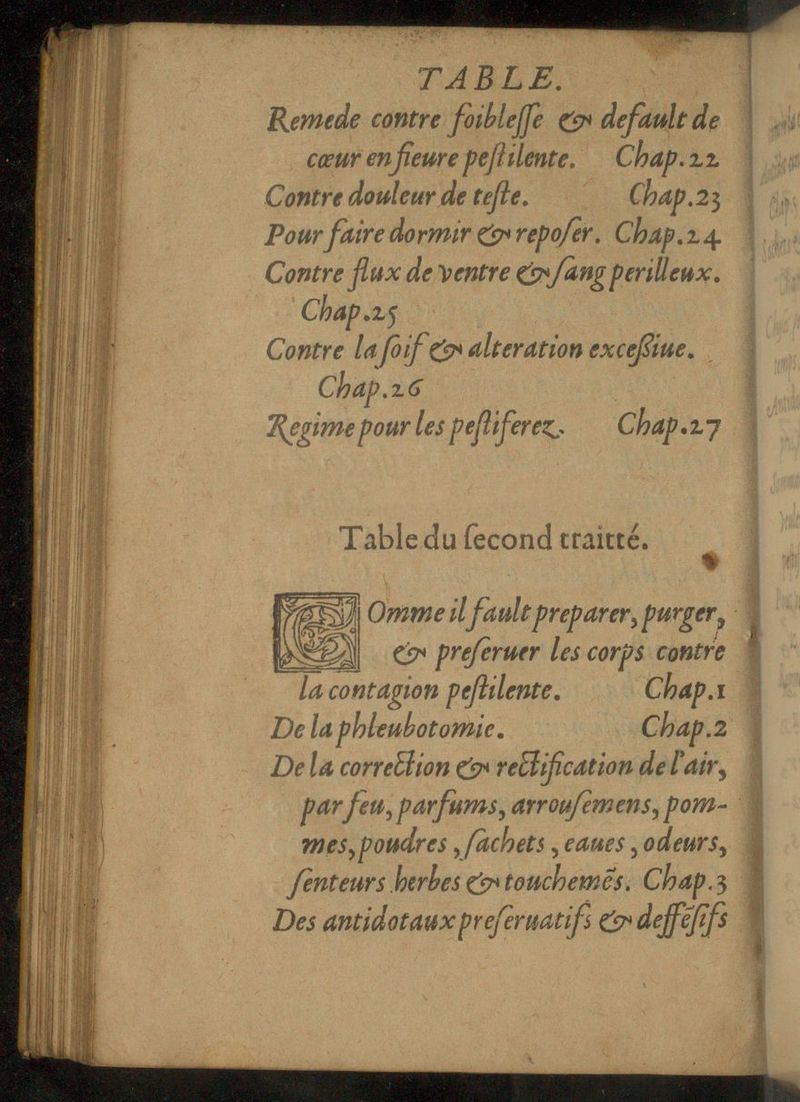 TABLE.
Remede contre foibleſſe & default de
cœur en fieure peſtilente. Chap.22
Contre douleur de teſte. Chap.23
Pour faire dormir & repoſer. Chap.24
Contre flux de ventre & ſang perilleux.
Chap.25
Contre la ſoif & alteration exceſſiue.
Chap.26
Regime pour les peſtiferez. Chap.27
Table du ſecond traitté.
COmme il fault preparer, purger,
& preſeruer les corps contre
la contagion peſtilente. Chap.1
De la phleubotomie. Chap.2
De la correction & rectification de l'air,
par feu, parfums, arrouſemens, pom-
mes, poudres, ſachets, eaues, odeurs,
ſenteurs herbes & touchemẽs. Chap.3
Des antidotaux preſeruatifs & deffẽſifs